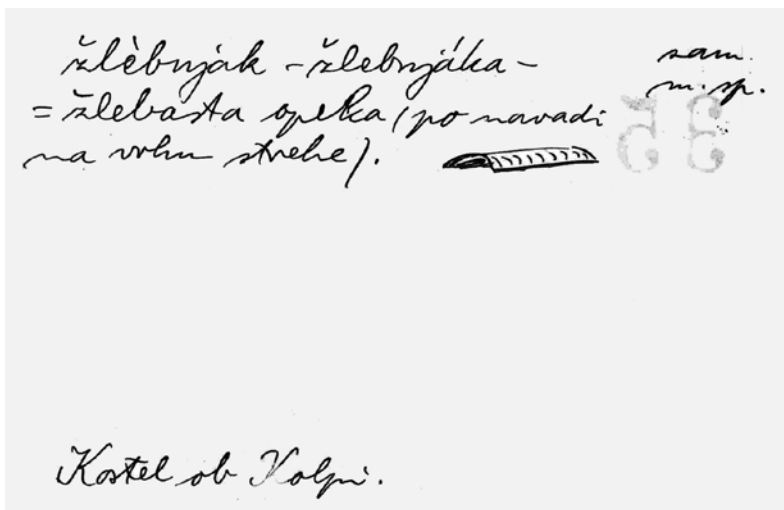 žlèbnjak - žlebnjáka -
sam.
m. sp.
= žlebasta opeka (po navadi
na vrhu strehe).
Kostel ob Kolpi.